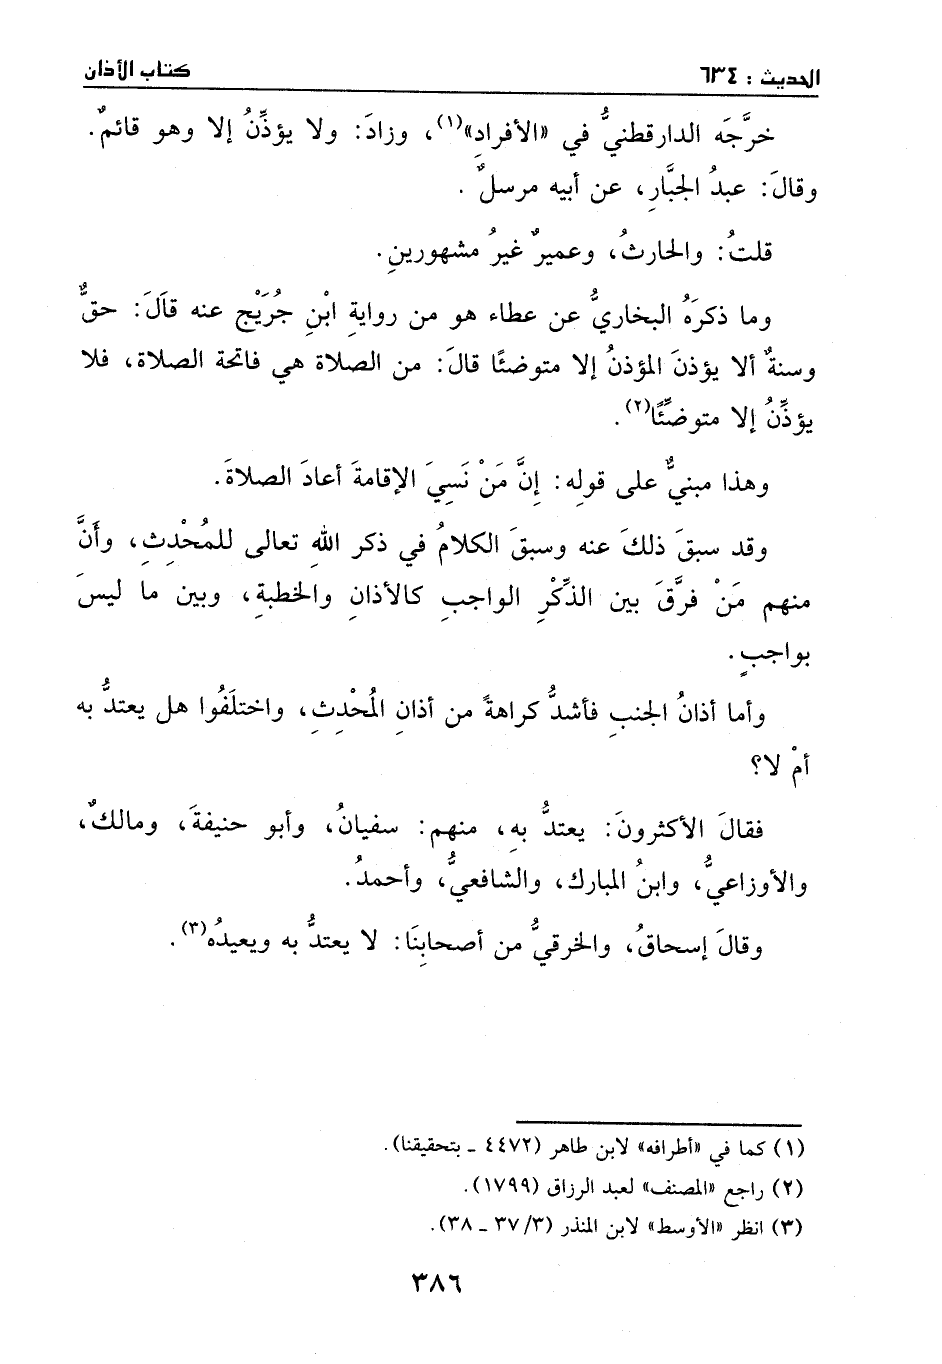 الحديث : ٦٣٤
كتاب الأذان
خرَّجَه الدارقطنيُّ في «الأفرادِ»(١)، وزادَ: ولا يؤذِّنُ إلا وهو قائمٌ.
وقالَ: عبدُ الجبَّارِ، عن أبيه مرسلٌ .
قلتُ: والحارثُ، وعميرٌ غيرُ مشهورينِ.
وما ذكرَهُ البخاريُّ عن عطاء هو من روايةِ ابْنِ جُرَيْجٍ عنه قالَ: حقٌّ
وسنةٌ ألا يؤذنَ المؤذنُ إلا متوضئًا قالَ: من الصلاة هي فاتحة الصلاة، فلا
يؤذِّنُ إلا متوضِّئًا(٢).
وهذا مبنيٌّ على قولِه: إِنَّ مَنْ نَسِيَ الإقامةَ أعادَ الصلاةَ.
وقد سبقَ ذلكَ عنه وسبقَ الكلامُ في ذكر اللهِ تعالى للمُحْدِثِ، وأَنَّ
منهم مَنْ فرَّقَ بين الذِّكْرِ الواجبِ كالأذانِ والخطبةِ، وبين ما ليسَ
بواجبٍ.
وأما أذانُ الجنبِ فأشدُّ كراهةً من أذانِ المُحْدِثِ، واختلَفُوا هل يعتدُّ به
أمْ لا؟
فقالَ الأكثرونَ: يعتدُّ بِهِ، منهم: سفيانُ، وأبو حنيفةَ، ومالكٌ،
والأوزاعيُّ، وابنُ المبارك، والشافعيُّ، وأحمدُ.
وقالَ إسحاقُ، والخرقيُّ من أصحابِنَا: لا يعتدُّ به ويعيدُه(٣).
(١) كما في «أطرافه» لابن طاهر (٤٤٧٢ ـ بتحقيقنا).
(٢) راجع «المصنف» لعبد الرزاق (١٧٩٩).
(٣) انظر «الأوسط» لابن المنذر (٣/ ٣٧ ـ ٣٨).
٣٨٦